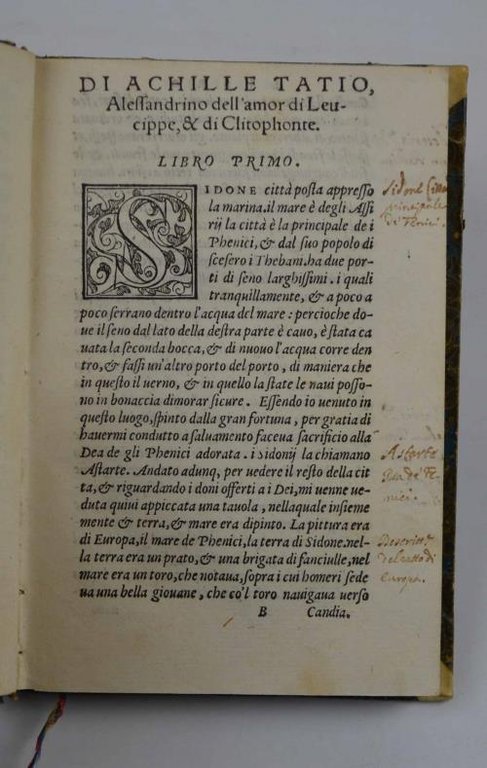 DI ACHILLE TATIO,
Aleſſandrino dell'amor di Leu-
cippe, & di Clitophonte.
LIBRO PRIMO.
SIDONE città poſta appreſſo
la marina. il mare è degli Aſſi
rij la città è la principale de i
Phenici, & dal ſuo popolo di
ſceſero i Thebani. ha due por-
ti di ſeno larghiſſimi. i quali
tranquillamente, & a poco a
poco ſerrano dentro l'acqua del mare: percioche do-
ue il ſeno dal lato della deſtra parte è cauo, è ſtata ca
uata la ſeconda bocca, & di nuouo l'acqua corre den
tro, & faſſi un'altro porto del porto, di maniera che
in queſto il uerno, & in quello la ſtate le naui poſſo-
no in bonaccia dimorar ſicure. Eſſendo io uenuto in
queſto luogo, ſpinto dalla gran fortuna, per gratia di
hauermi condutto a ſaluamento faceua ſacrificio alla
Dea de gli Phenici adorata. i Sidonij la chiamano
Aſtarte. Andato adunq, per uedere il reſto della cit
ta, & riguardando i doni offerti a i Dei, mi uenne ue-
duta quiui appiccata una tauola, nellaquale inſieme
mente & terra, & mare era dipinto. La pittura era
di Europa, il mare de Phenici, la terra di Sidone. nel-
la terra era un prato, & una brigata di fanciulle, nel
mare era un toro, che notaua, ſopra i cui homeri ſede
ua una bella giouane, che co'l toro nauigaua uerſo
B Candia.
Sidone Citta
principale
de Fenici.
Astarte
Dea de Fe-
nici.
del ratto di
Europa.